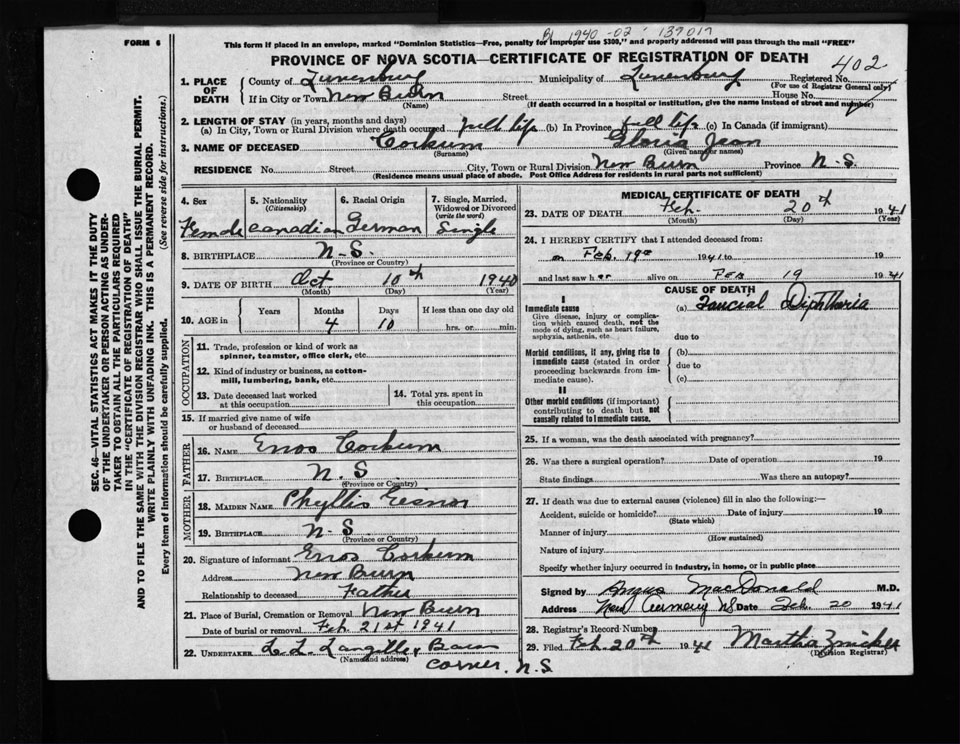 FORM 6
B 1940-02-137017
This form if placed in an envelope, marked "Dominion Statistics—Free, penalty for improper use $300," and properly addressed will pass through the mail "FREE"
PROVINCE OF NOVA SCOTIA—CERTIFICATE OF REGISTRATION OF DEATH
402
1. PLACE OF DEATH County of Lunenburg Municipality of Lunenburg Registered No.
(For use of Registrar General only)
If in City or Town New Burn Street House No.
(Name) (If death occurred in a hospital or institution, give the name instead of street and number)
2. LENGTH OF STAY (in years, months and days)
(a) In City, Town or Rural Division where death occurred full life (b) In Province full life (c) In Canada (if immigrant)
3. NAME OF DECEASED Corkum Gloria Jean
(Surname) (Given name or names)
RESIDENCE No. Street City, Town or Rural Division New Burn Province N.S.
(Residence means usual place of abode. Post Office Address for residents in rural parts not sufficient)
4. Sex
Female
5. Nationality
(Citizenship)
Canadian
6. Racial Origin
German
7. Single, Married, Widowed or Divorced
(write the word)
Single
8. BIRTHPLACE N.S.
(Province or Country)
9. DATE OF BIRTH Oct 10th 1940
(Month) (Day) (Year)
10. AGE in Years Months Days If less than one day old
4 10 hrs. or min.
OCCUPATION
11. Trade, profession or kind of work as
spinner, teamster, office clerk, etc.
12. Kind of industry or business, as cotton-
mill, lumbering, bank, etc.
13. Date deceased last worked
at this occupation
14. Total yrs. spent in
this occupation
15. If married give name of wife
or husband of deceased
FATHER
16. NAME Enos Corkum
17. BIRTHPLACE N.S.
(Province or Country)
MOTHER
18. MAIDEN NAME Phyllis Eisnor
19. BIRTHPLACE N.S
(Province or Country)
20. Signature of informant Enos Corkum
Address New Burn
Relationship to deceased Father
21. Place of Burial, Cremation or Removal New Burn
Date of burial or removal Feb 21st 1941
22. UNDERTAKER L. L. Langille, Barss
(Name and address)
Corner, N.S
MEDICAL CERTIFICATE OF DEATH
23. DATE OF DEATH Feb. 20th 1941
(Month) (Day) (Year)
24. I HEREBY CERTIFY that I attended deceased from:
on Feb. 19th 1941 to 19
and last saw her alive on Feb 19 1941
CAUSE OF DEATH
I
Immediate cause
Give disease, injury or complica-
tion which caused death, not the
mode of dying, such as heart failure,
asphyxia, asthenia, etc.
(a) Faucial Diphtharia
due to
Morbid conditions, if any, giving rise to
immediate cause (stated in order
proceeding backwards from im-
mediate cause).
(b)
due to
(c)
II
Other morbid conditions (if important)
contributing to death but not
causally related to immediate cause.
25. If a woman, was the death associated with pregnancy?
26. Was there a surgical operation? Date of operation 19
State findings Was there an autopsy?
27. If death was due to external causes (violence) fill in also the following:—
Accident, suicide or homicide? Date of injury 19
(State which)
Manner of injury
(How sustained)
Nature of injury
Specify whether injury occurred in industry, in home, or in public place
Signed by Angus MacDonald M.D.
Address New Germany NS Date Feb. 20 1941
28. Registrar's Record Number
29. Filed Feb. 20th 1941 Martha Zwicker
(Division Registrar)
SEC. 46—VITAL STATISTICS ACT MAKES IT THE DUTY
OF THE UNDERTAKER OR PERSON ACTING AS UNDER-
TAKER TO OBTAIN ALL THE PARTICULARS REQUIRED
IN THE "CERTIFICATE OF REGISTRATION OF DEATH"
AND TO FILE THE SAME WITH THE DIVISION REGISTRAR WHO SHALL ISSUE THE BURIAL PERMIT.
WRITE PLAINLY WITH UNFADING INK. THIS IS A PERMANENT RECORD.
Every item of information should be carefully supplied. (See reverse side for instructions.)